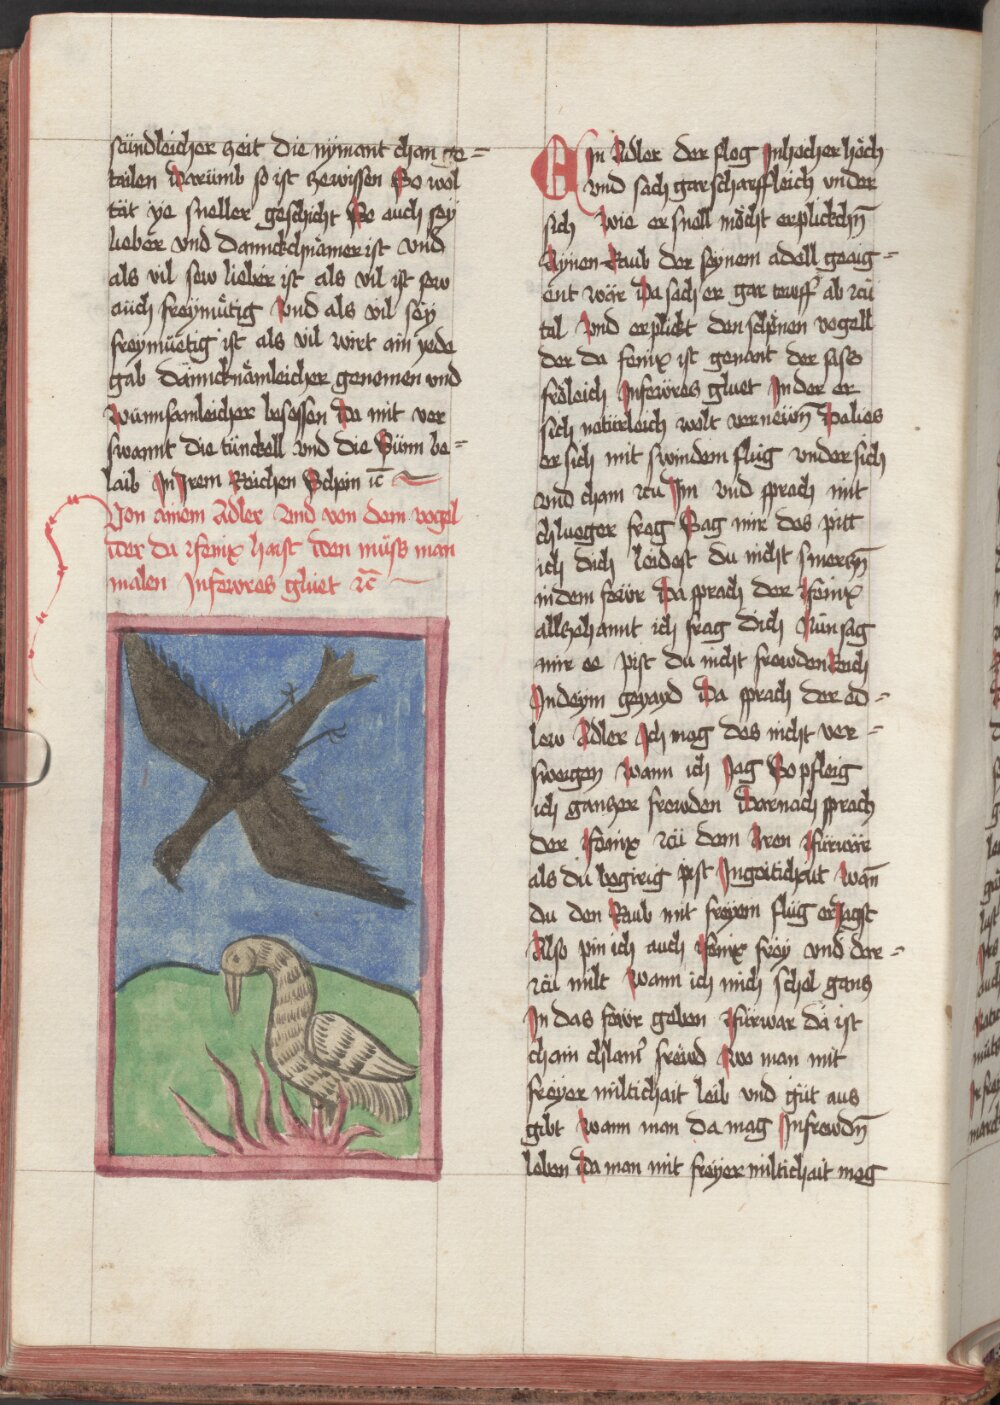 stündleicher zeit die nÿmant chan ze=
tailen Darümb so ist zewissen So wol
tät ÿe sneller geschicht So auch seÿ
lieber vnd Dannckchnämer ist vnd
als vil sew lieber ist als vil ist sew
auch freÿmütig Vnd als vil seÿ
freÿmüetig ist als vil wirt ain ÿede
gab dänncknämleicher genomen vnd
Wunnsamleicher besessen Da mit ver
swannt die tünckell vnd die Sünn be=
laib In Irem Reichen Schein
Von ainem Adler Vnd von dem vogel
Der da Fenix haist Den müss man
malen In fewres gluet
Ein Adler der flog In hocher höch
vnd sach gar scharffleich vnder
sich Wie er snell möcht erplickchn̄
Aÿnen Raub der seÿnem adell geaig=
ent wär Da sach er gar tewff ab zü
tal Vnd erplickt den schönen vogell
der da fenix ist genant der sass
fröleich In fewres gluet In der er
sich natürleich wolt vernewn̄ Da lies
er sich mit swindem flug vnder sich
vnd cham zü Im vnd sprach mit
chlueger frag Sag mir des pitt
ich dich leidest du nicht smerczn̄
in dem fewr Da sprach der Fenix
allzehannt ich frag dich Nün sag
mir ee pist du nicht frewden Reich
In deym geÿayd Da sprach der ed=
lew Adler Ich mag des nicht ver=
sweigen Wann ich Jag So pfleig
ich ganczer frewden Darnach sprach
der Fenix zü dem Aren Fürwär
als du begirig pist In geitichait Wan̄
du den Raub mit freÿem flüg erJagst
Also pin ich auch Fenix freÿ vnd dar=
zü milt Wann ich mich schol gancz
In das fewr geben Fürwar da ist
chain chlains frewd Wo man mit
freÿer miltichait leib vnd güt aus
gibt Wann man da mag In frewdn̄
leben Da man mit freÿer miltichait mag